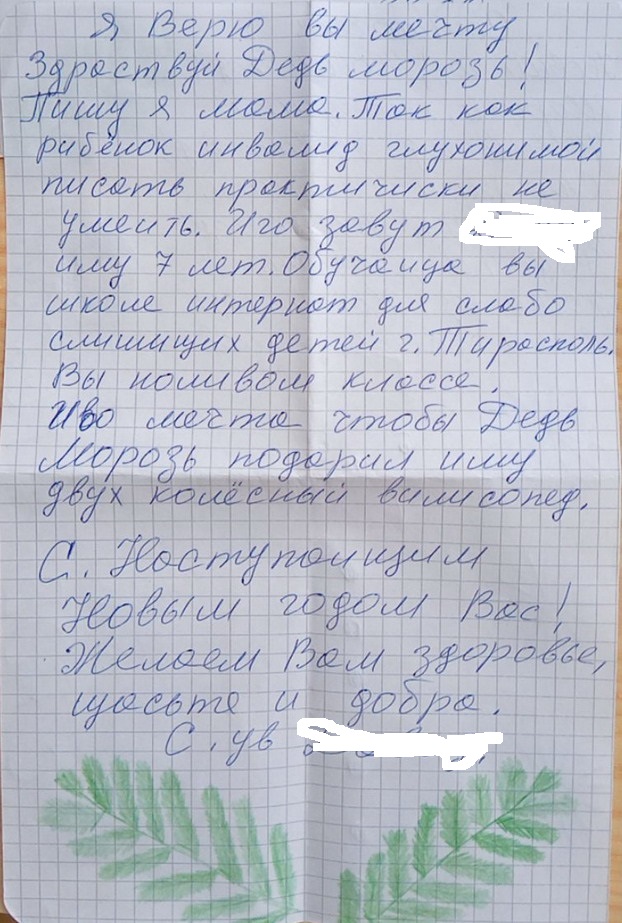 Я Верю вы мечту
Здраствуй Дедь морозь!
Пишу я мама. Так как
рибёнок инвалид глухонимой
писать практически не
умеить. Иго завут
иму 7 лет. Обучаица вы
школе интернат для слабо
слишищих детей г. Тирасполь.
Выноливом классе.
Иво мечта чтобы Дедь
Морозь подарил иму
двух колёсный вилисопед.
С. Наступающим
Новым годом Вас!
Желаем Вам здоровье,
щасьте и добра.
С. ув